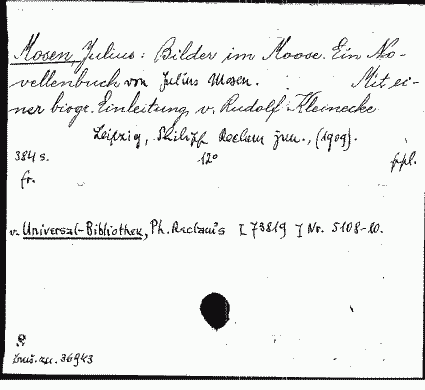 Mosen, Julius: Bilder im Moose. Ein No-
vellenbuch von Julius Mosen. Mit ei-
ner biogr. Einleitung v. Rudolf Kleinecke
Leipzig, Philipp Reclam jun., (1909).
384 s. 12° ppl.
fr.
v. Universal-Bibliothek, Ph. Reclam's [73819] Nr. 5108-10.
36943